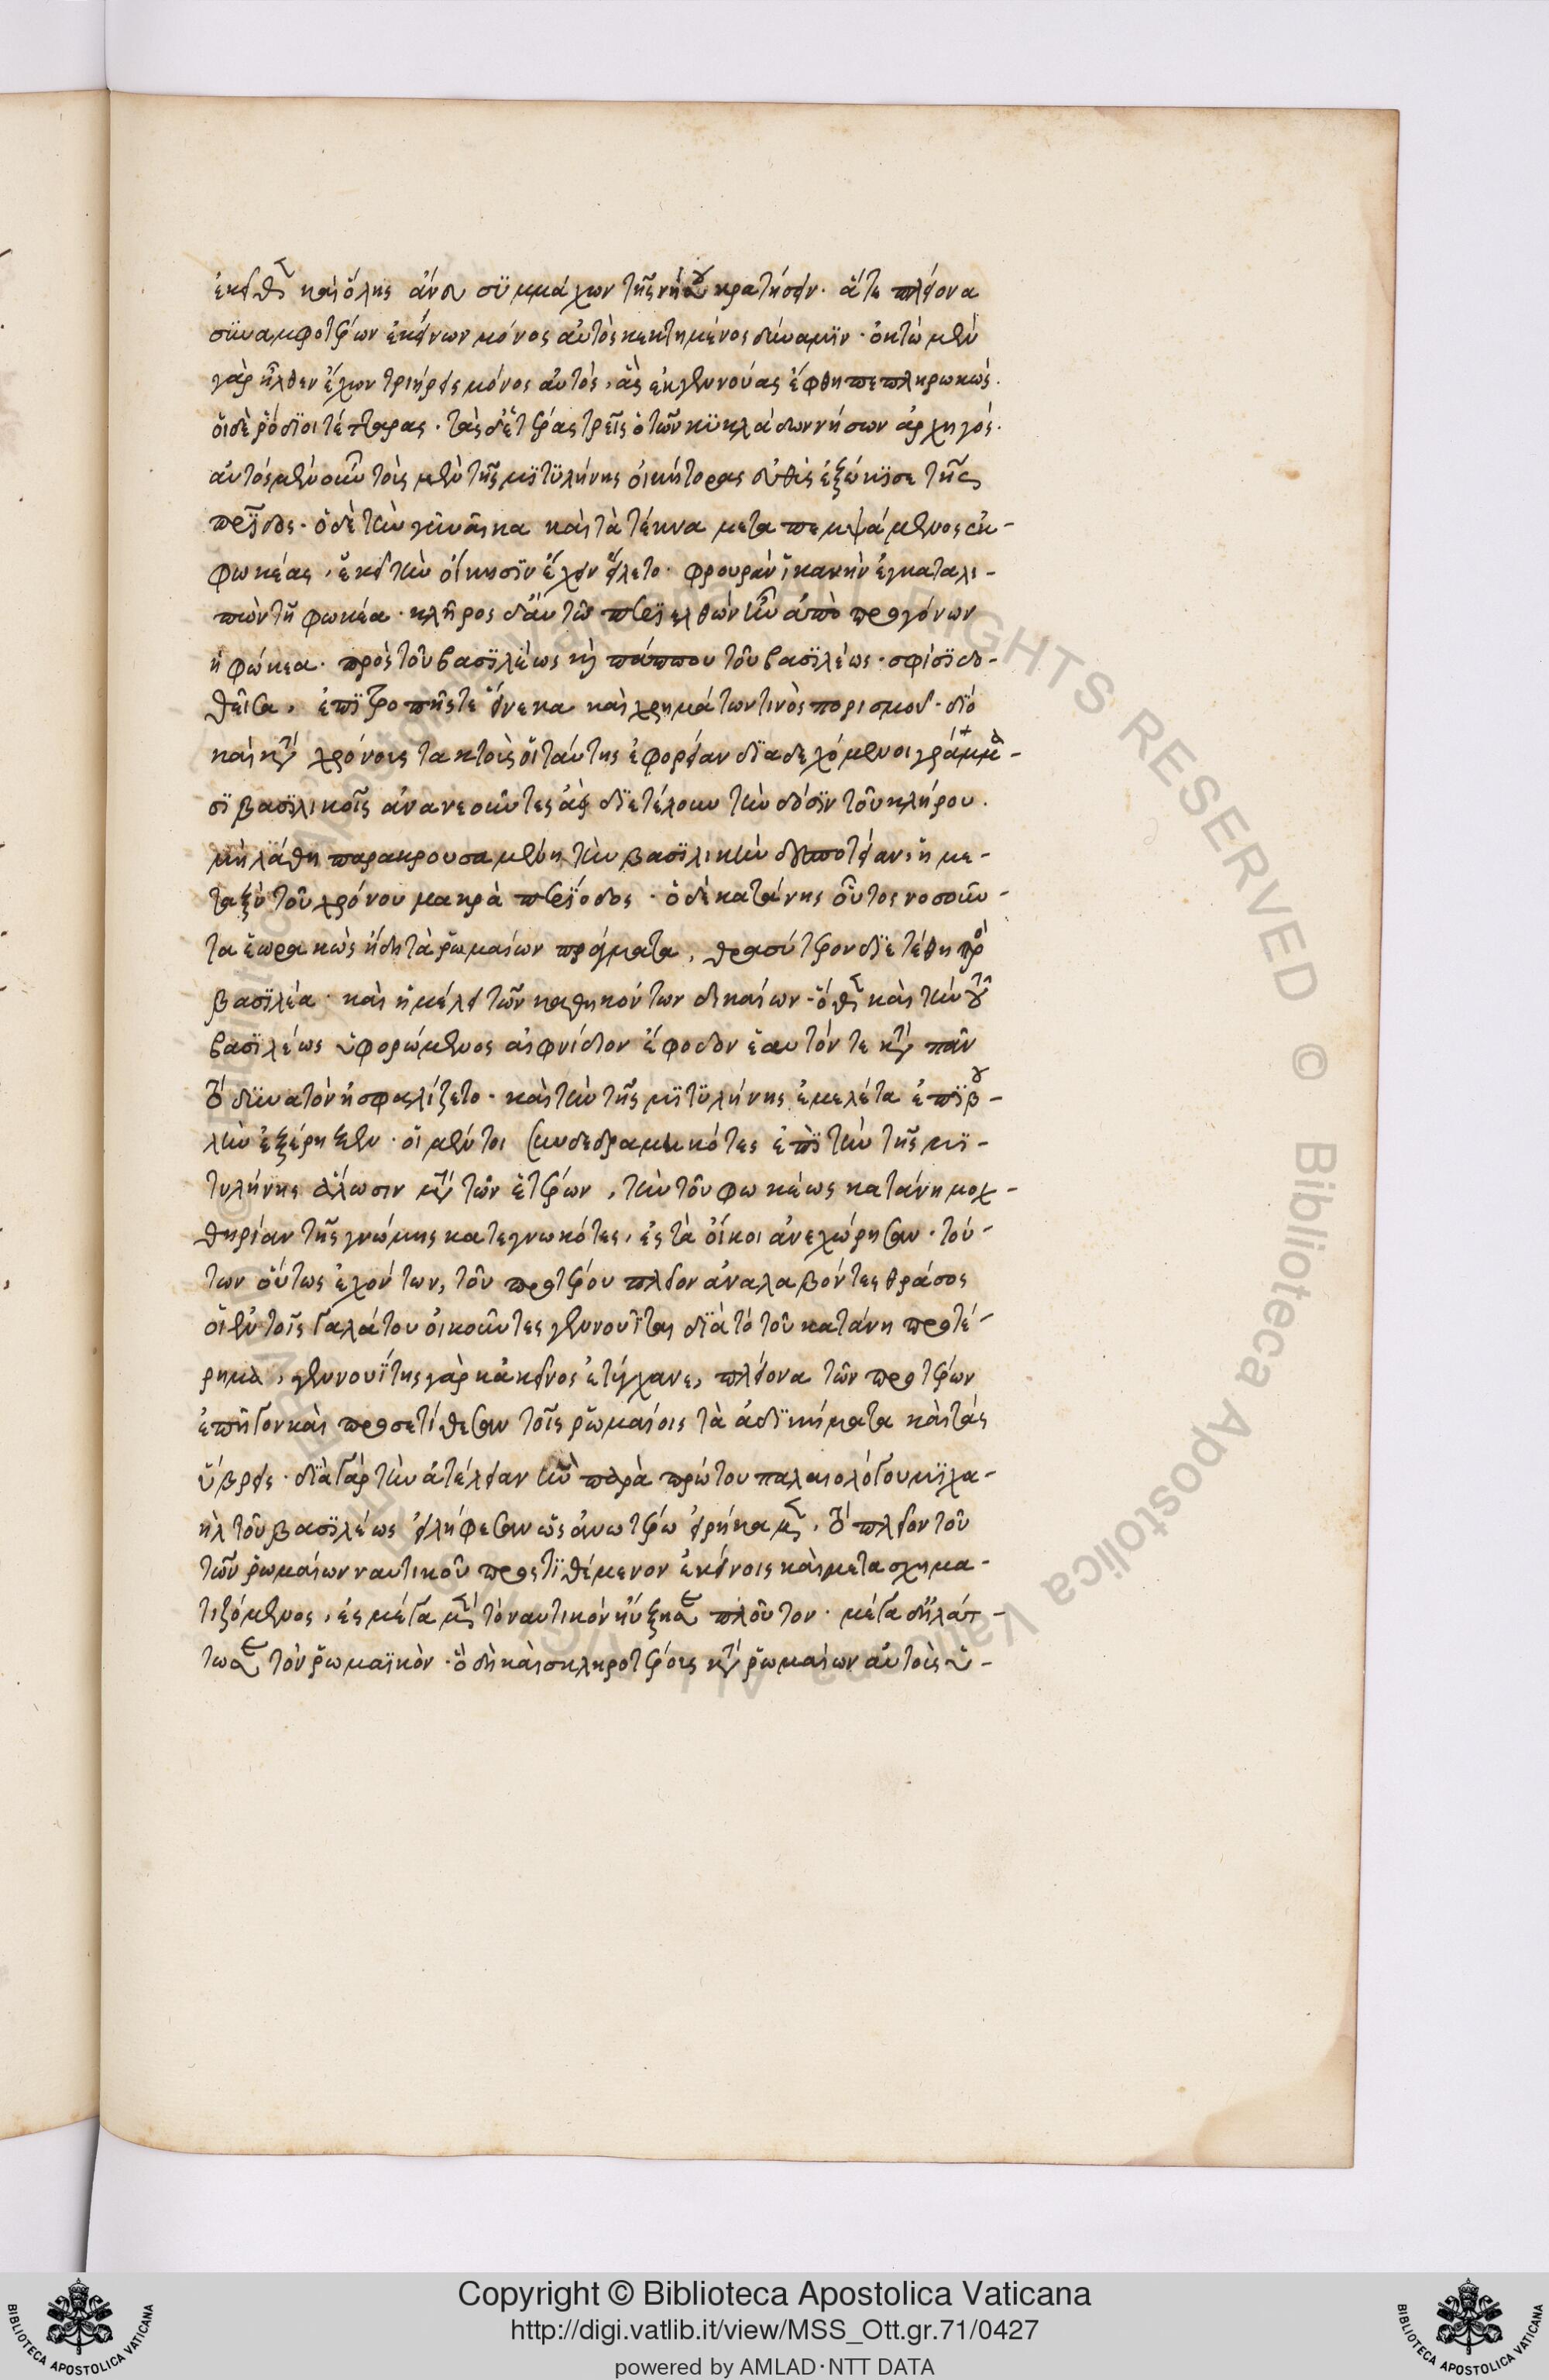 ἐκεῖθεν καὶ ὅλης ἄνευ συμμάχων τῆς νήσου κρατήσειν· ἅτε πλείονα
συναμφοτέρων ἐκείνων μόνος αὐτὸς κεκτημένος δύναμιν· ὀκτὼ μὲν
γὰρ ἦλθεν ἔχων τριήρεις μόνος αὐτὸς, ἃς ἐκ γεννούας ἔφθη πεπληρωκώς.
οἱ δὲ ῥόδιοι τέτταρας· τὰς δ' ἑτέρας τρεῖς ὁ τῶν κυκλάδων νήσων ἀρχηγός.
αὐτὸς μὲν οὖν τοὺς μὲν τῆς μιτυλήνης οἰκήτορας εὐθὺς ἐξώκισε τῆς
πατρίδος· ὁ δὲ τὴν γυναῖκα καὶ τὰ τέκνα μεταπεμψάμενος ἐκ
φωκέας, ἐκεῖ τὴν οἴκησιν ἔχειν εἵλετο· φρουρὰν ἱκανὴν ἐγκαταλι-
πὼν τῇ φωκέᾳ· κλῆρος δ' αὐτῷ περιελθὼν ἦν ἀπὸ προγόνων
ἡ φώκεα· πρὸς τοῦ βασιλέως καὶ πάππου τοῦ βασιλέως· σφίσι δο-
θεῖσα, ἐπιτροπῆς τε εἵνεκα καὶ χρημάτων τινὸς πορισμοῦ· διὸ
καὶ κατὰ χρόνους τακτοὺς οἱ ταύτης ἐφορείαν διαδεχόμενοι γράμμα-
σι βασιλικοῖς ἀνανεοῦντες ἀεὶ διετέλουν τὴν δόσιν τοῦ κλήρου.
μὴ λάθῃ παρακρουσαμένη τὴν βασιλικὴν δεσποτείαν, ἡ με-
ταξὺ τοῦ χρόνου μακρὰ περίοδος· ὁ δὲ κατάνης οὗτος νοσοῦν-
τα ἑωρακὼς ἤδη τὰ ῥωμαίων πράγματα, θρασύτερον διετέθη πρὸς
βασιλέα· καὶ ἠμέλει τῶν καθηκόντων δικαίων· ὅθεν καὶ τὴν τοῦ
βασιλέως ὑφορώμενος αἰφνίδιον ἔφοδον ἑαυτόν τε κατὰ πᾶν
τὸ δυνατὸν ἠσφαλίζετο· καὶ τὴν τῆς μιτυλήνης ἐμελέτα ἐπιβου-
λὴν ἐξέρηξεν· οἱ μέντοι συνδεδραμηκότες ἐπὶ τὴν τῆς μι-
τυλήνης ἅλωσιν μετὰ τῶν ἑτέρων, τὴν τοῦ φωκέως κατάνη μοχ-
θηρίαν τῆς γνώμης κατεγνωκότες, ἐς τὰ οἴκοι ἀνεχώρησαν· τού-
των οὕτως ἐχόντων, τοῦ προτέρου πλεῖον ἀναλαβόντες θράσος
οἱ ἐν τοῖς Γαλάτου οἰκοῦντες γεννουῖται διὰ τὸ τοῦ κατάνη προτέ-
ρημα, γεννουΐτης γὰρ κἀκεῖνος ἐτύγχανε, πλείονα τῶν προτέρων
ἐπῆγον καὶ προσετίθεσαν τοῖς ῥωμαίοις τὰ ἀδικήματα καὶ τὰς
ὕβρεις· διὰ γὰρ τὴν ἀτέλειαν ἣν παρὰ πρώτου παλαιολόγου μιχα-
ὴλ τοῦ βασιλέως εἰλήφεσαν ὡς ἀνωτέρω εἰρήκαμεν, τὸ πλεῖον τοῦ
τῶν ῥωμαίων ναυτικοῦ προστιθέμενον ἐκείνοις καὶ μετασχημα-
τιζόμενος, ἐς μέγα μὲν τὸ ναυτικὸν ηὔξησε πλοῦτον· μέγα δ' ἠλάτ-
τωσε τὸν ῥωμαϊκὸν· ὃ δὴ καὶ σκληροτέρους κατὰ ῥωμαίων αὐτοὺς ὑ-
Copyright © Biblioteca Apostolica Vaticana
http://digi.vatlib.it/view/MSS_Ott.gr.71/0427
powered by AMLAD·NTT DATA